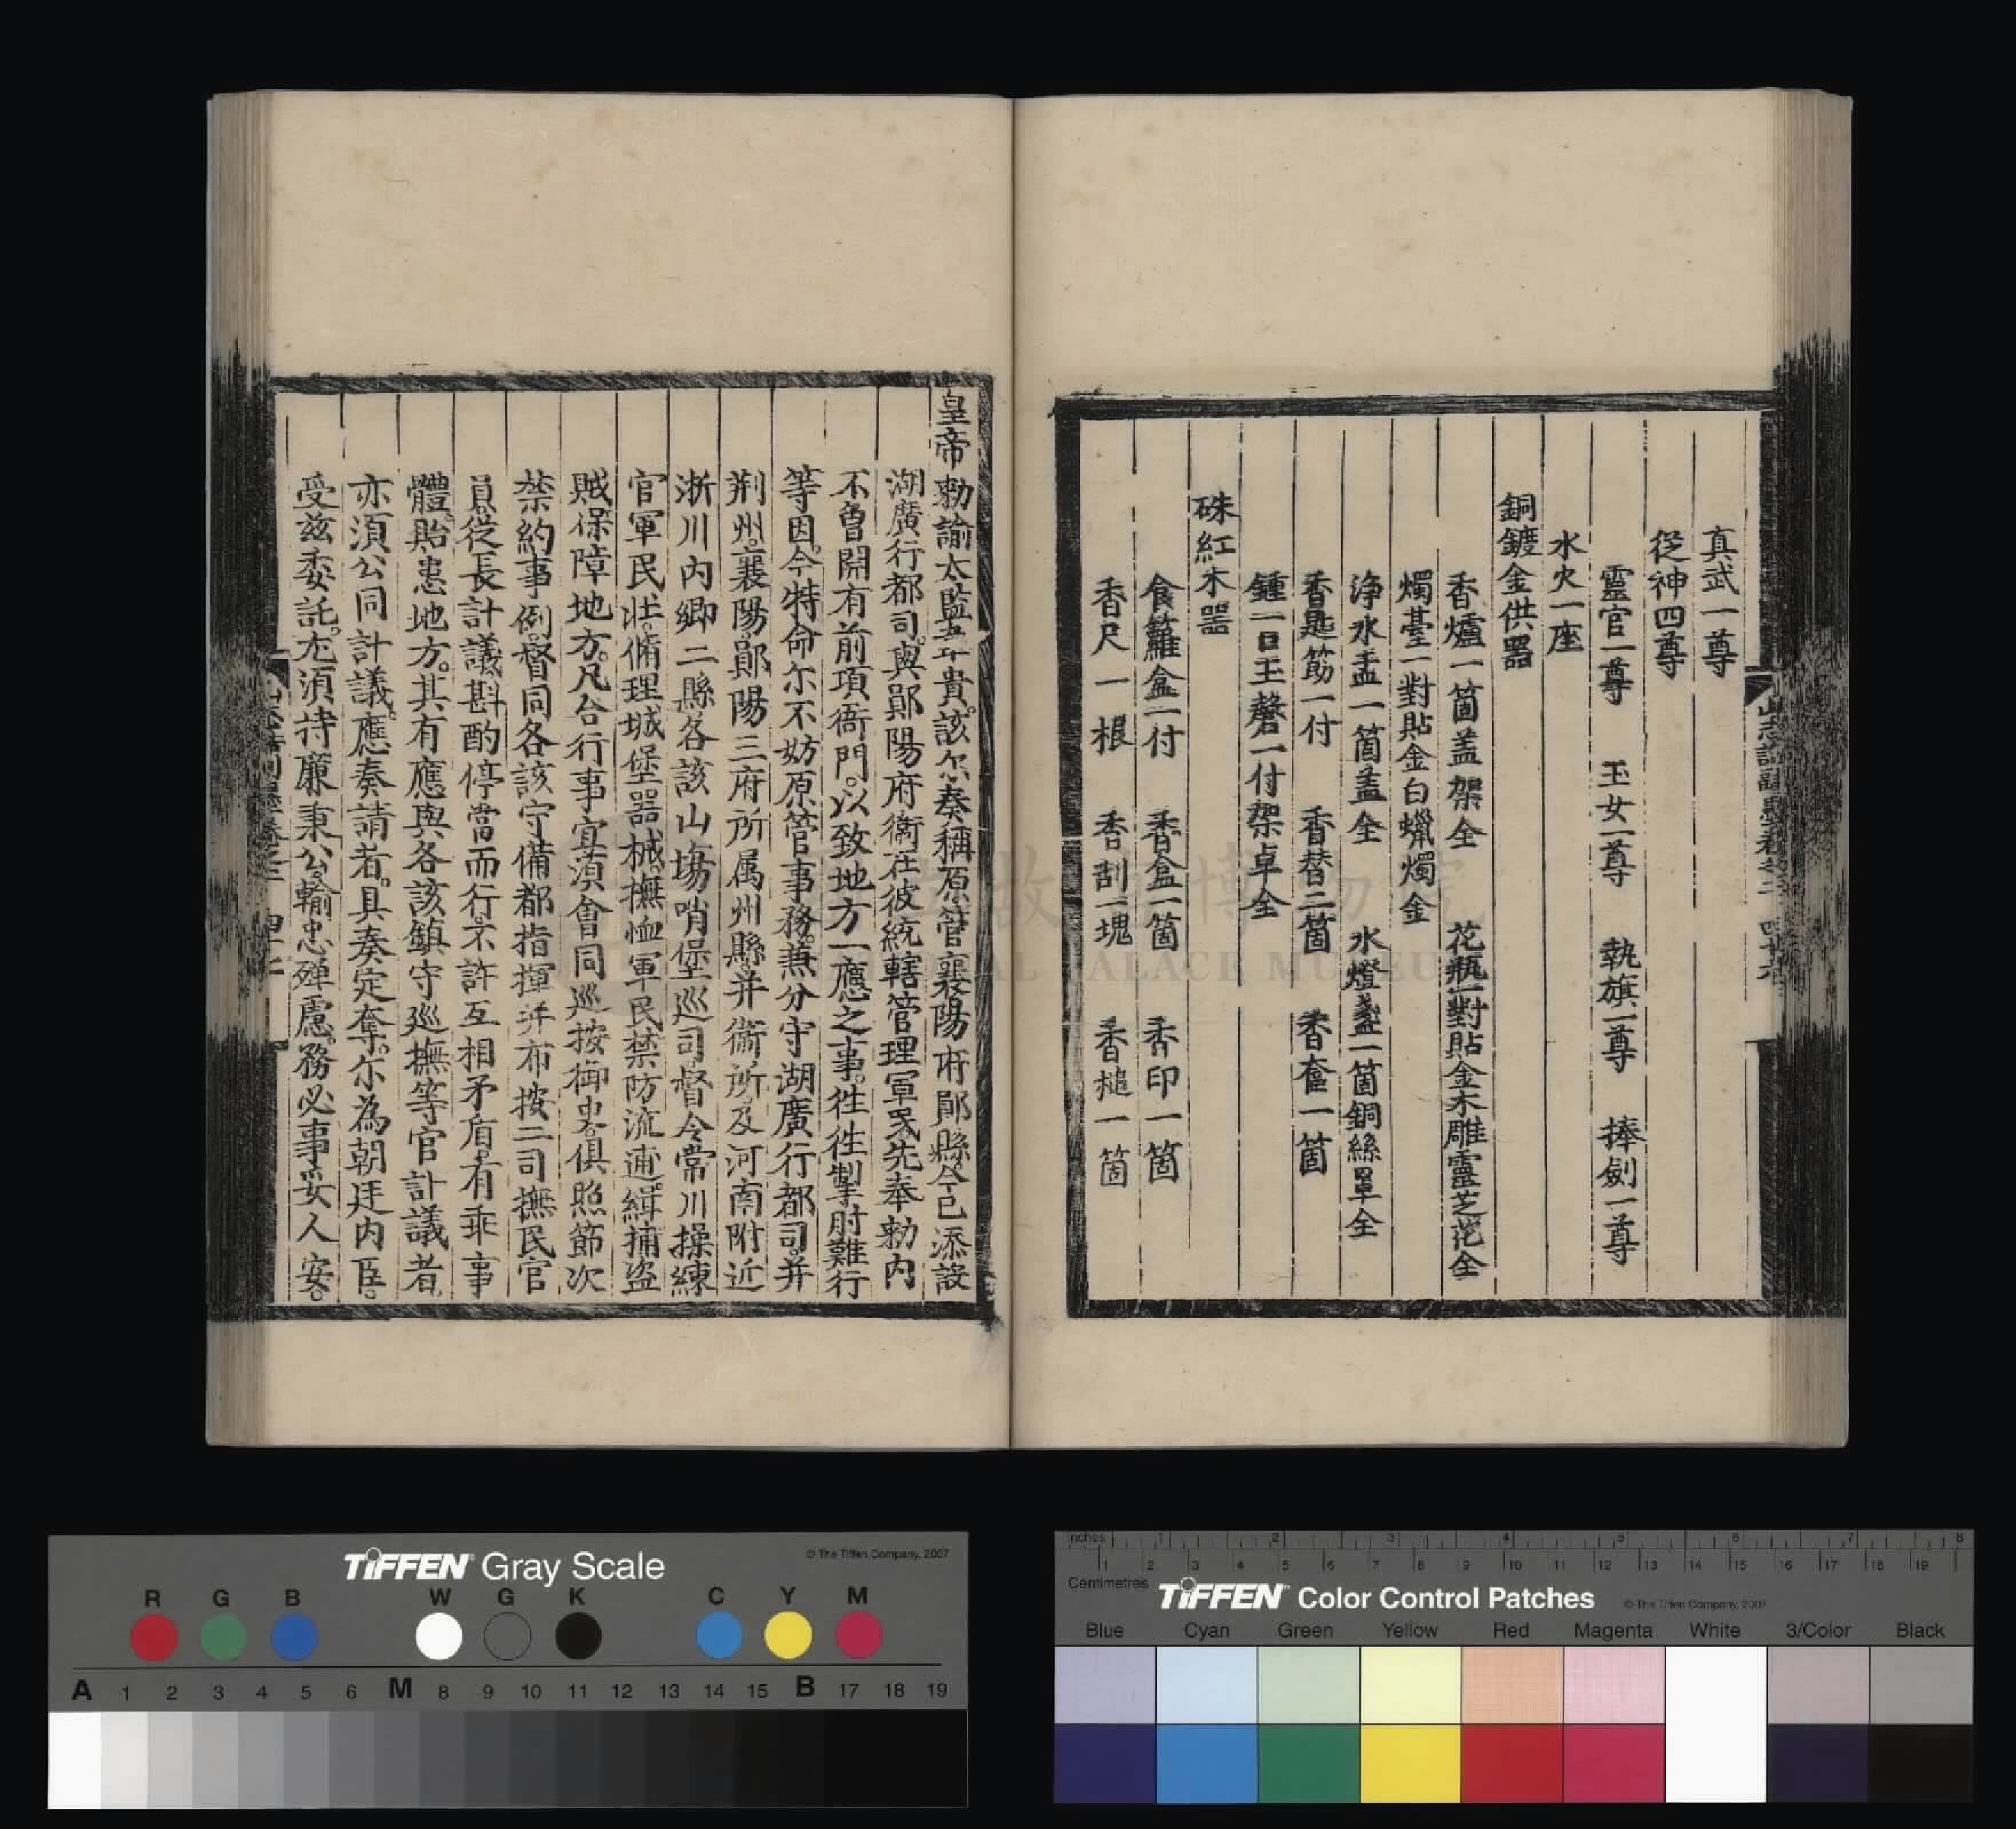 真武一尊
從神四尊
靈官一尊 玉女一尊 執旗一尊 捧劍一尊
水火一座
銅鍍金供器
香爐一箇盖架全 花瓶一對貼金木雕靈芝花全
燭臺一對貼金白蠟燭全
淨水盂一箇盖全 水燈盞一箇銅絲罩全
香匙筯一付 香替二箇 香奩一箇
鍾一口玉磬一付架卓全
硃紅木器
食籮盒一付 香盒一箇 香印一箇
香尺一根 香刮一塊 香槌一箇
皇帝勅諭太監韋貴該尔奏稱原管襄陽府鄖縣今已添設
湖廣行都司與鄖陽府衛在彼統轄管理軍民先奉勅内
不曽開有前項衙門以致地方一應之事徃徃掣肘難行
等因今特命尔不妨原管事務兼分守湖廣行都司并
荆州襄陽鄖陽三府所属州縣并衛所及河南附近
淅川内鄉二縣各該山塲哨堡巡司督令常川操練
官軍民壮脩理城堡器械撫恤軍民禁防流逋緝捕盜
賊保障地方凡合行事宜湏會同巡按御史俱照節次
禁約事例督同各該守備都指揮并布按二司撫民官
員從長計議斟酌停當而行不許互相矛盾有乖事
體貽患地方其有應與各該鎮守巡撫等官計議者
亦湏公同計議應奏請者具奏定奪尔為朝廷内臣
受兹委託尤湏持廉秉公輸忠殫慮務必事妥人安
NATIONAL PALACE MUSEUM
TIFFEN Gray Scale
© The Tiffen Company, 2007
R G B W G K C Y M
A 1 2 3 4 5 6 M 8 9 10 11 12 13 14 15 B 17 18 19
Inches 1 2 3 4 5 6 7 8
1 2 3 4 5 6 7 8 9 10 11 12 13 14 15 16 17 18 19
Centimetres
TIFFEN Color Control Patches
© The Tiffen Company, 2007
Blue Cyan Green Yellow Red Magenta White 3/Color Black